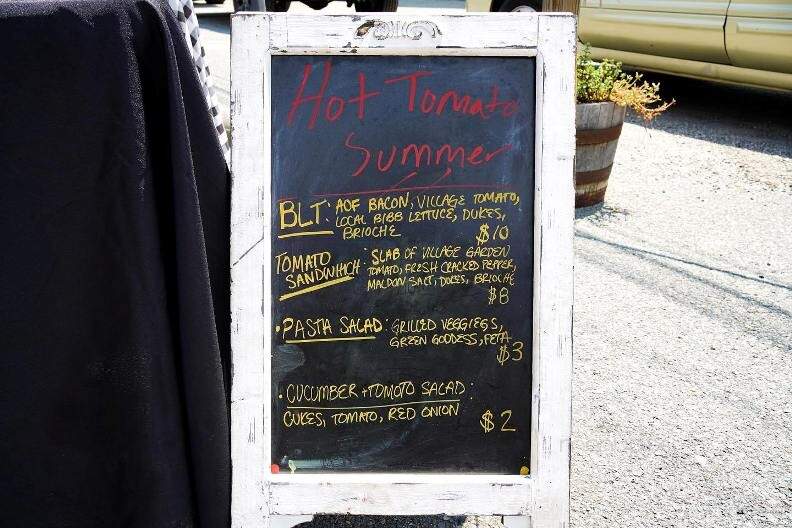 Hot Tomato
Summer
BLT: AOF BACON, VILLAGE TOMATO,
LOCAL BIBB LETTUCE, DUKES,
BRIOCHE $10
TOMATO SANDWHICH: SLAB OF VILLAGE GARDEN
TOMATO, FRESH CRACKED PEPPER,
MALDON SALT, DUKES, BRIOCHE
$8
• PASTA SALAD: GRILLED VEGGIEGS,
GREEN GODDESS, FETA
$3
• CUCUMBER + TOMOTO SALAD:
CUKES, TOMATO, RED ONION $2